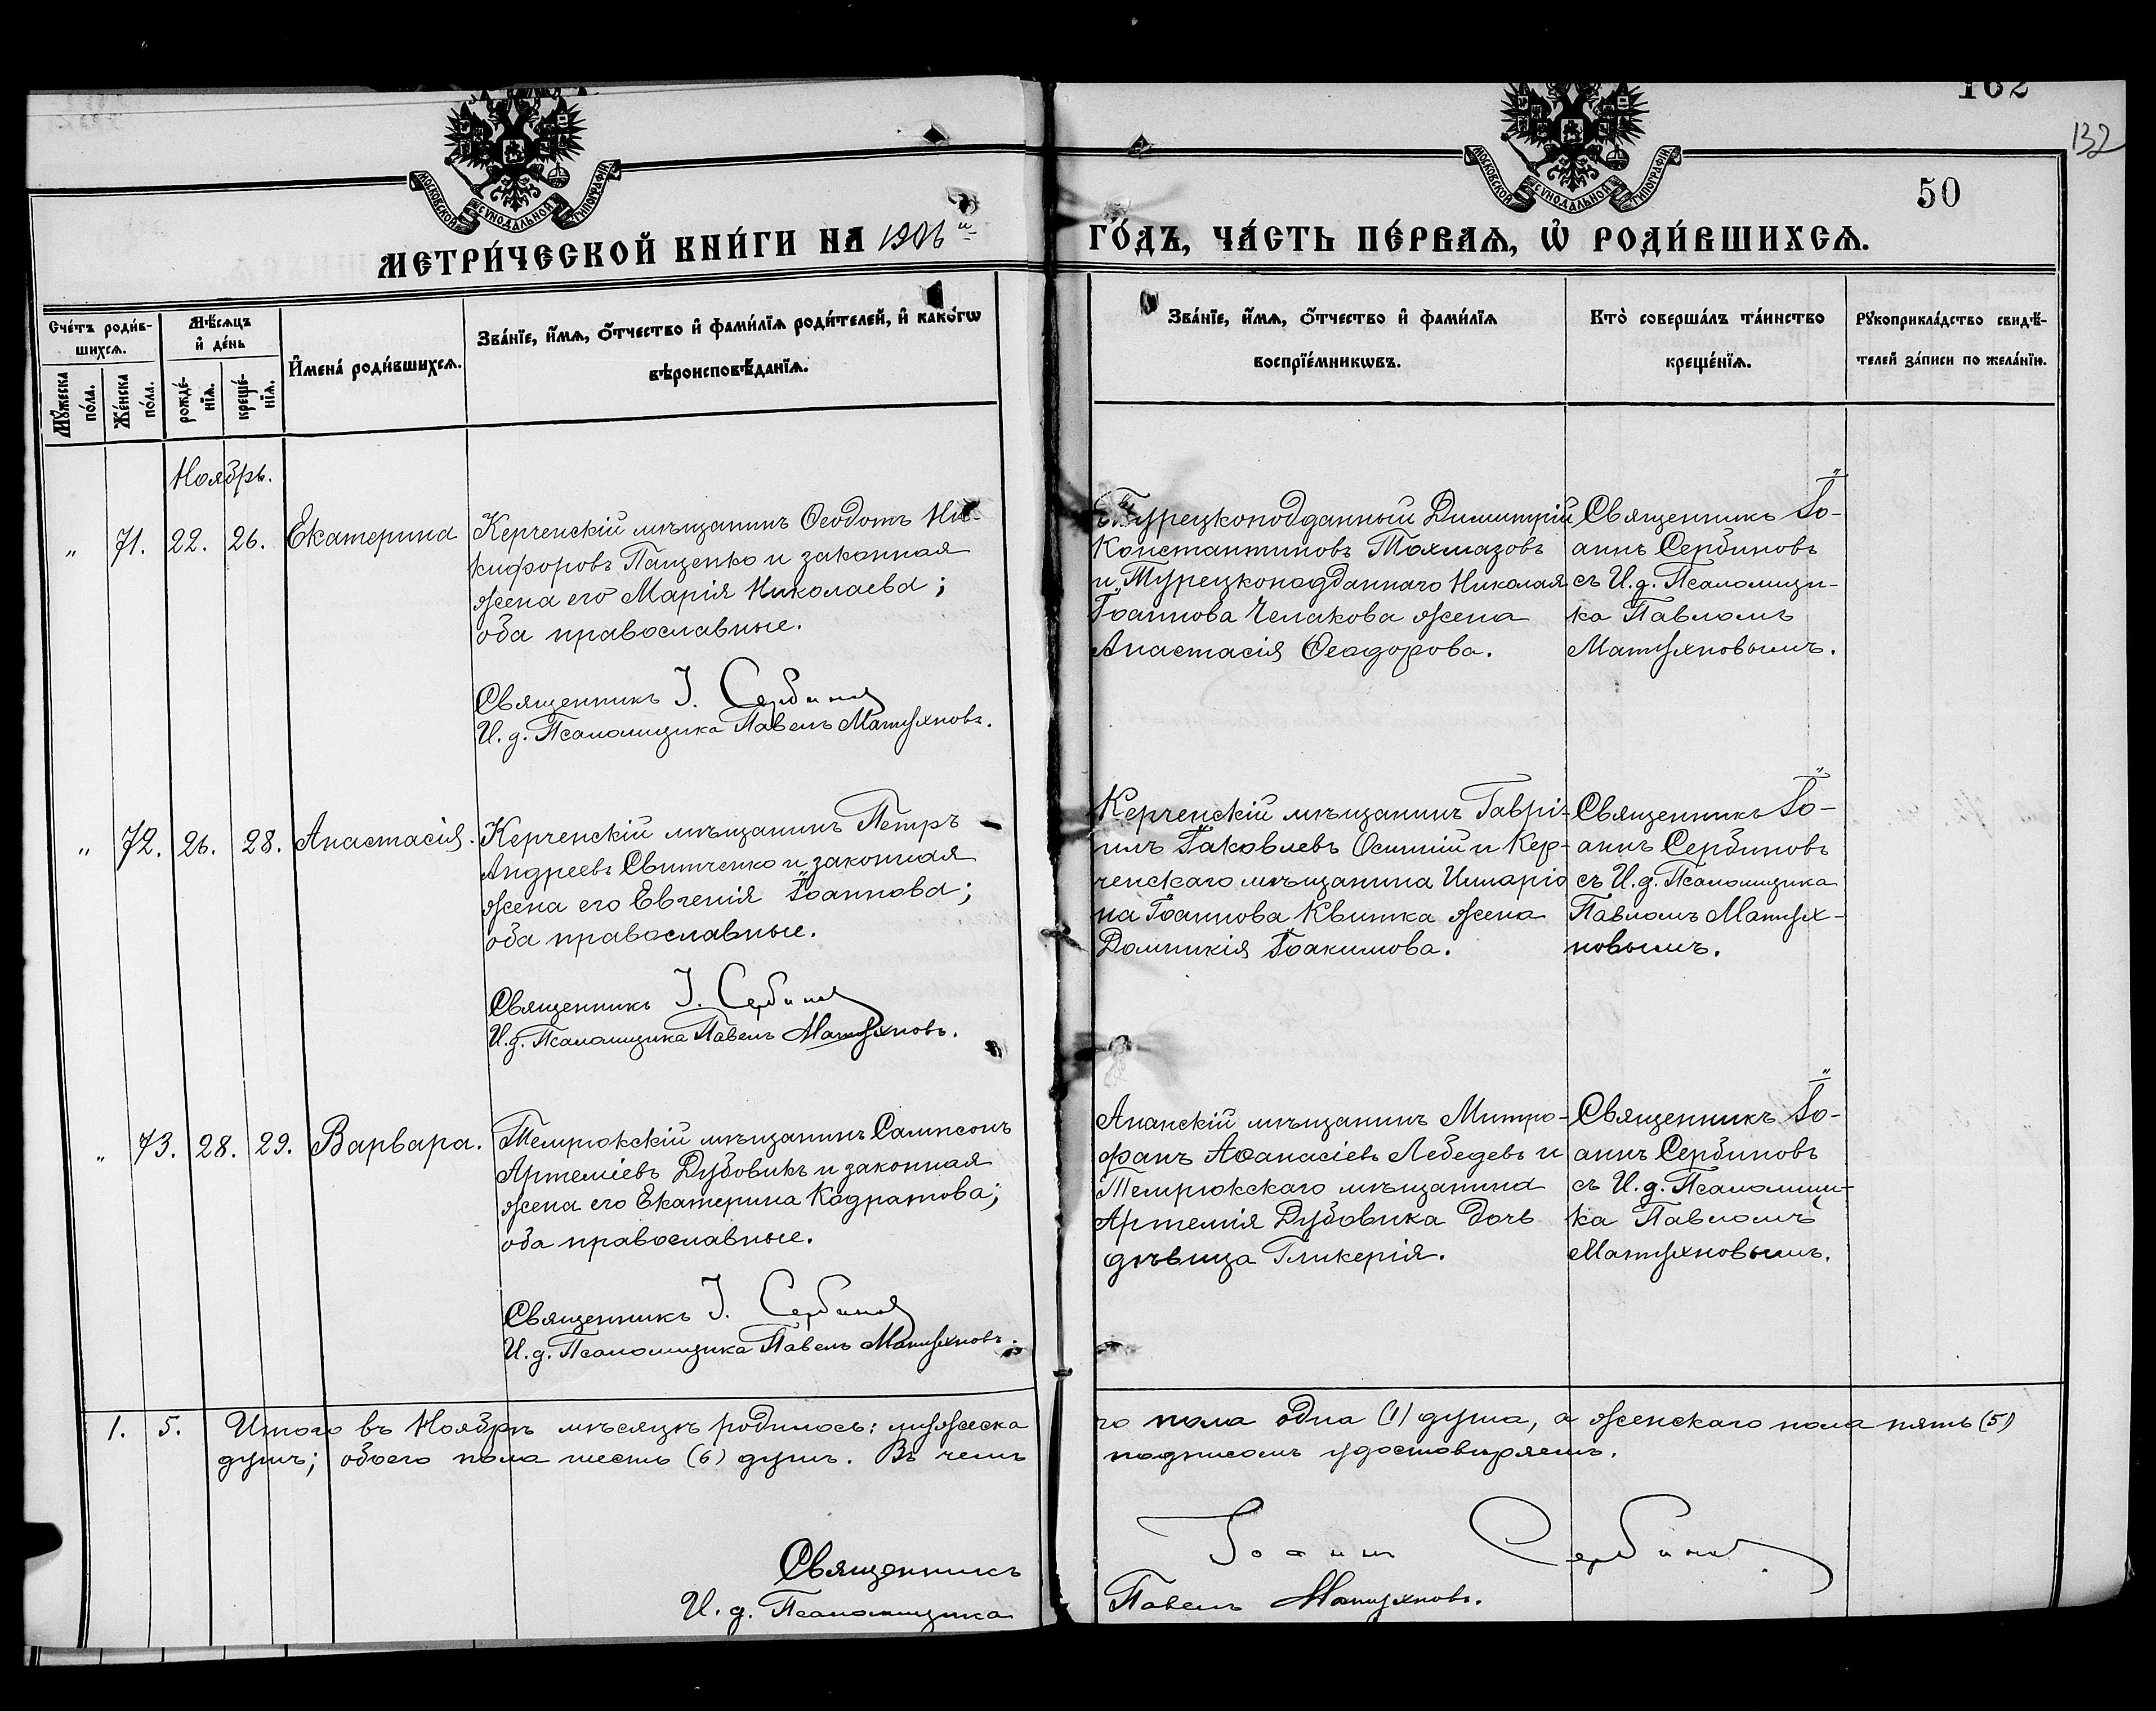 162
132
50
МОСКОВСКОЙ СѴНОДАЛЬНОЙ ТИПОГРАФІИ
МОСКОВСКОЙ СѴНОДАЛЬНОЙ ТИПОГРАФІИ
МЕТРИ́ЧЕСКОЙ КНИ́ГИ НА 1906 й
ГО́ДЪ, ЧА́СТЬ ПЕ́РВАѦ, Ѡ҆ РОДИ́ВШИХСѦ.
Сче́тъ роди́в-
шихсѧ.
Мꙋ́жеска по́ла.
Же́нска по́ла.
Мѣ́сѧцъ
и҆ де́нь
рожде́-
нїѧ.
креще́-
нїѧ.
И҆мена̀ роди́вшихсѧ.
Зва́нїе, и҆́мѧ, ѻ҆́тчество и҆ фами́лїѧ роди́телей, и҆ како́гѡ
вѣроисповѣ́данїѧ.
Зва́нїе, и҆́мѧ, ѻ҆́тчество и҆ фами́лїѧ
воспрїе́мникѡвъ.
Кто̀ соверша́лъ та́инство
креще́нїѧ.
Рꙋкоприкла́дство свидѣ́-
телей за́писи по жела́нїю.
Ноябрь.
„ 71. 22. 26. Екатерина
Керченскій мѣщанинъ Ѳеодотъ Ни-
кифоровъ Пащенко и законная
жена его Марія Николаева;
оба православные.
Священникъ І. Сербинов
И. д. Псаломщика Павелъ Матухновъ.
Турецкоподданный Димитрій
Константиновъ Тахмазовъ
и Турецкоподданнаго Николая
Іоаннова Чепакова жена
Анастасія Ѳеодорова.
Священникъ Іо-
аннъ Сербиновъ
съ И. д. Псаломщи-
ка Павломъ
Матухновымъ.
„ 72. 26. 28. Анастасія.
Керченскій мѣщанинъ Петръ
Андреевъ Свитченко и законная
жена его Евгенія Іоаннова;
оба православные.
Священникъ І. Сербинов
И. д. Псаломщика Павелъ Матухновъ.
Керченскій мѣщанинъ Гаврі-
илъ Іаковлевъ Осинній и Кер-
ченскаго мѣщанина Иларіо
на Іоаннова Квитка жена
Домникія Іоакимова.
Священникъ Іо-
аннъ Сербиновъ
съ И. д. Псаломщика
Павломъ Матух-
новымъ.
„ 73. 28. 29. Варвара.
Темрюкскій мѣщанинъ Сампсонъ
Артеміевъ Дубовикъ и законная
жена его Екатерина Кодратова;
оба православные.
Священникъ І. Сербинов
И. д. Псаломщика Павелъ Матухновъ.
Анапскій мѣщанинъ Митро-
фанъ Аѳанасіевъ Лебедевъ и
Темрюкскаго мѣщанина
Артемія Дубовика дочь
дѣвица Гликерія.
Священникъ Іо-
аннъ Сербиновъ
съ И. д. Псаломщи-
ка Павломъ
Матухновымъ.
1. 5. Итого въ Ноябрѣ мѣсяцѣ родилось: мужеска
го пола одна (1) душа, а женскаго пола пять (5)
душъ; обоего пола шесть (6) душъ. Въ чемъ
подписомъ удостовѣряемъ.
Священникъ Іоаннъ Сербинов
И. д. Псаломщика Павелъ Матухновъ.